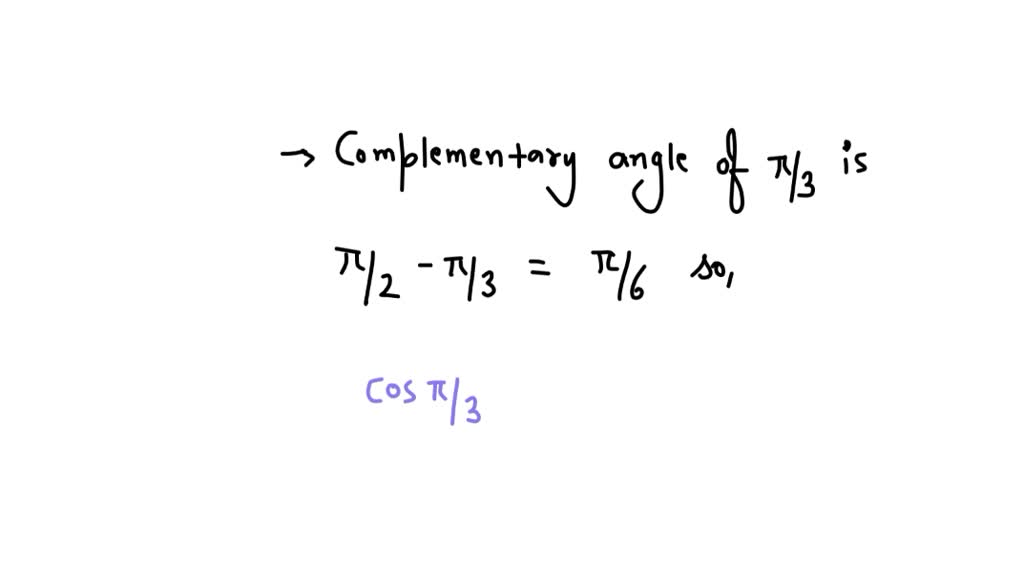 → Complementary angle of π/3 is
π/2 - π/3 = π/6 so,
cos π/3